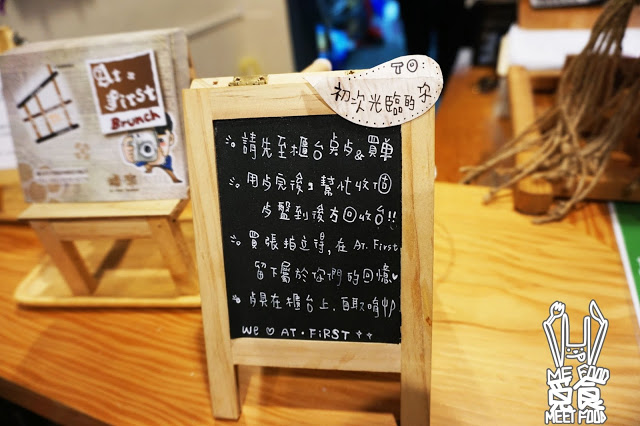 At
first
Brunch
TO
初次光臨的你
請先至櫃台點餐&買單
用餐完後, 幫忙收回
餐盤到後方回收台!!
買張拍立得,在 AT. First
留下屬於你們的回憶♥
餐具在櫃台上,自取唷
We ♡ AT・FiRST ++
MEET FOOD